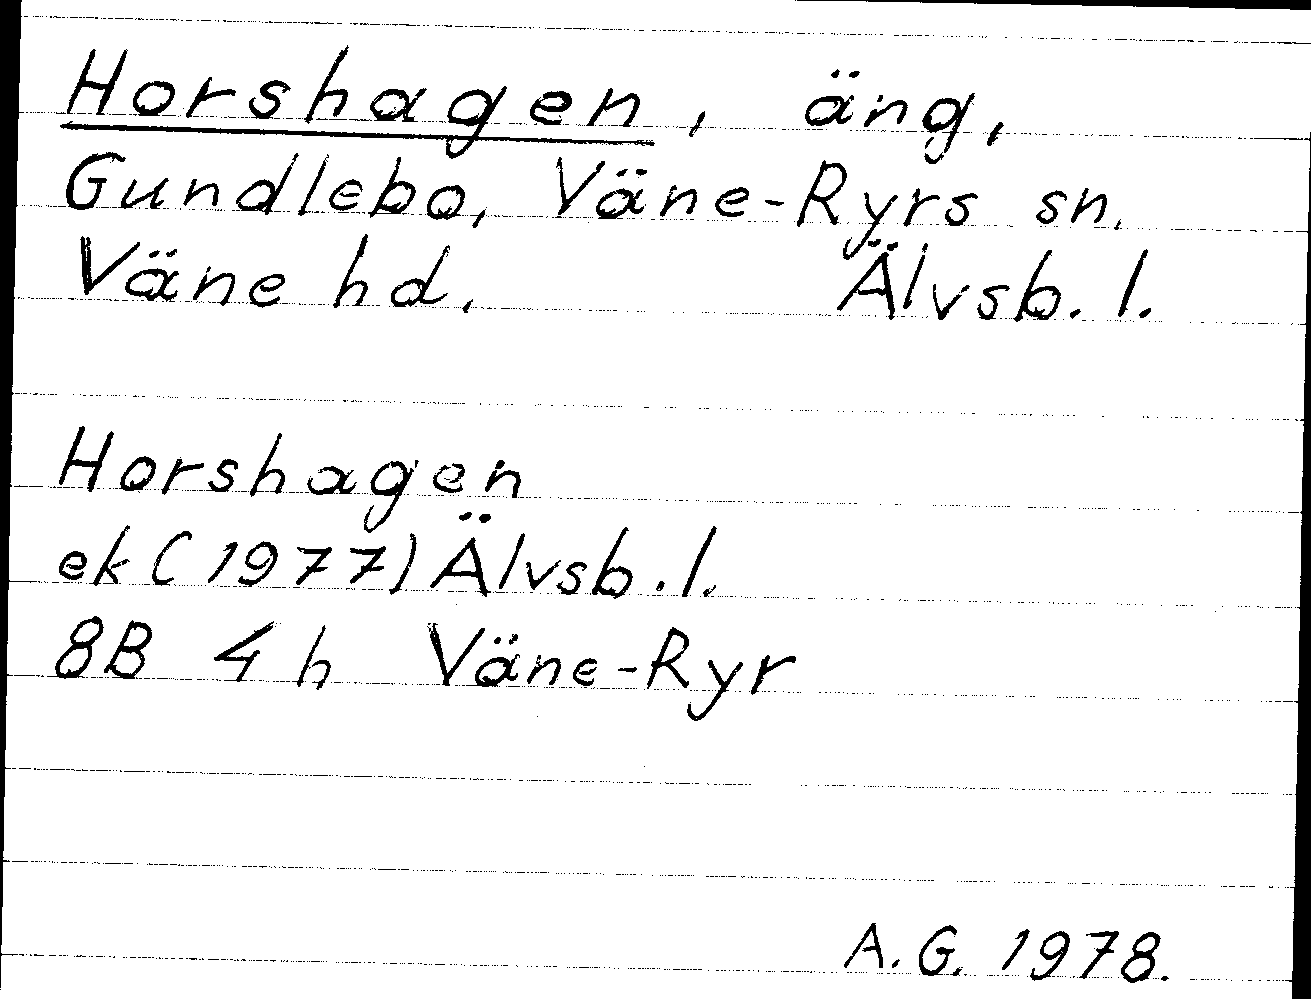 Horshagen, äng,
Gundlebo, Väne-Ryrs sn.
Väne hd. Älvsb. l.
Horshagen
ek (1977) Älvsb. l.
8B 4h Väne-Ryr
A. G. 1978.